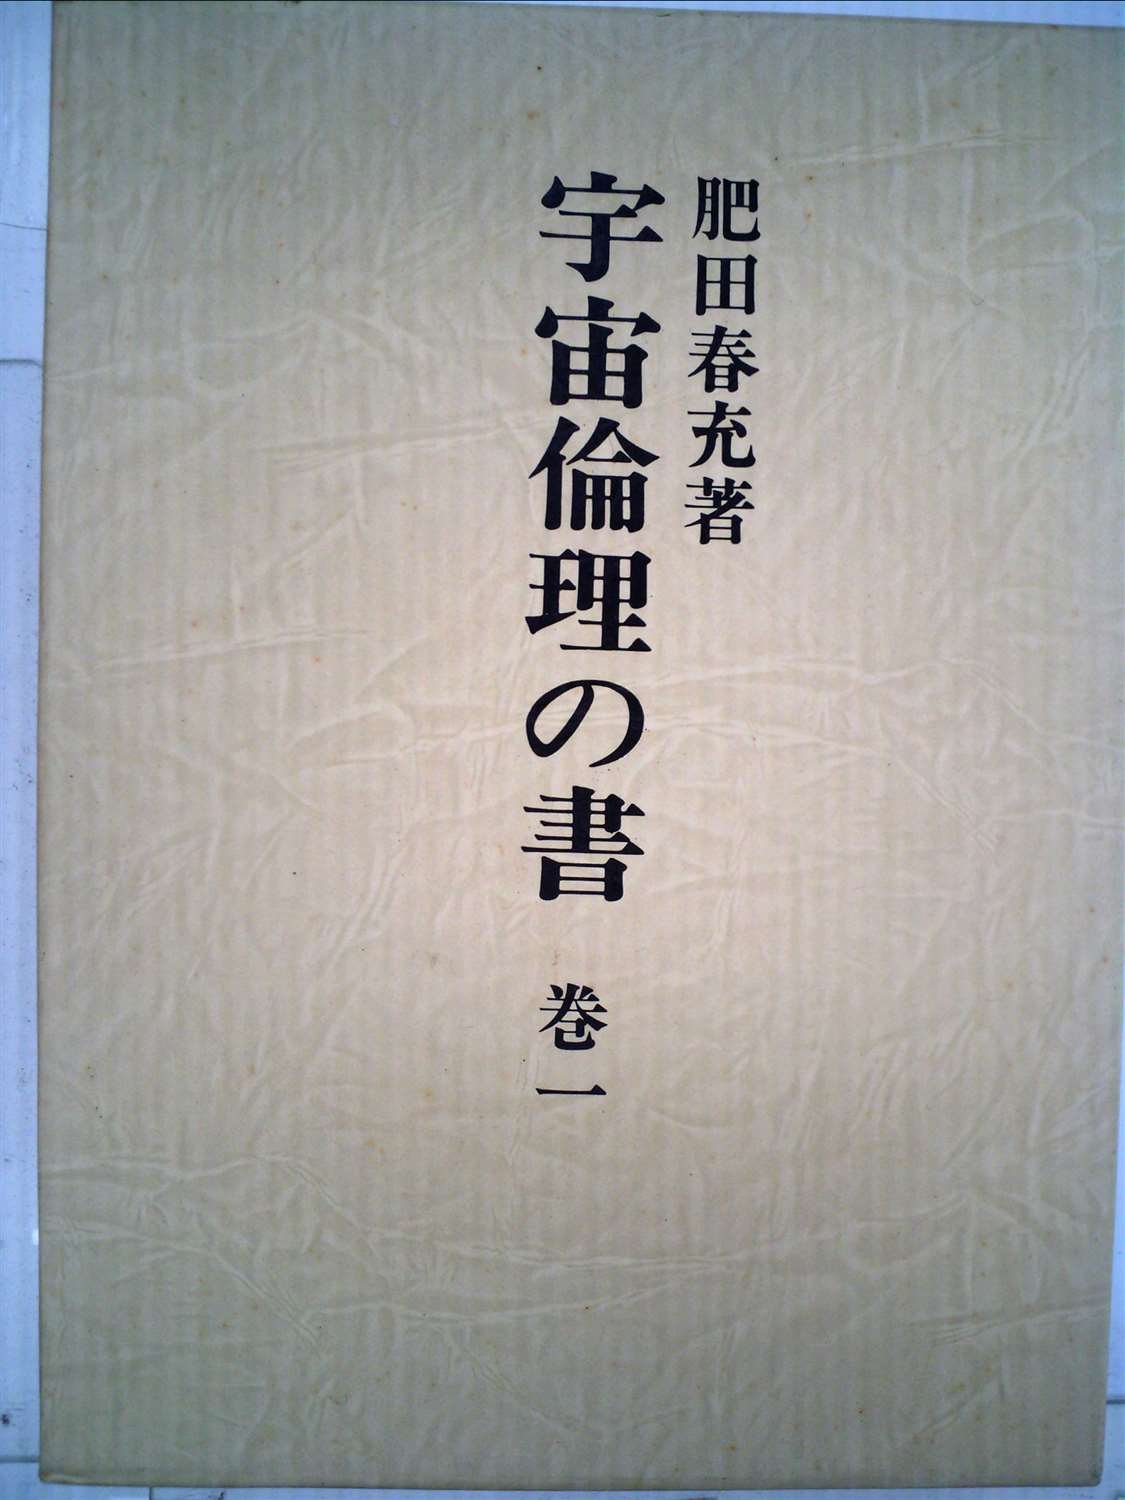 肥田春充著
宇宙倫理の書 巻一